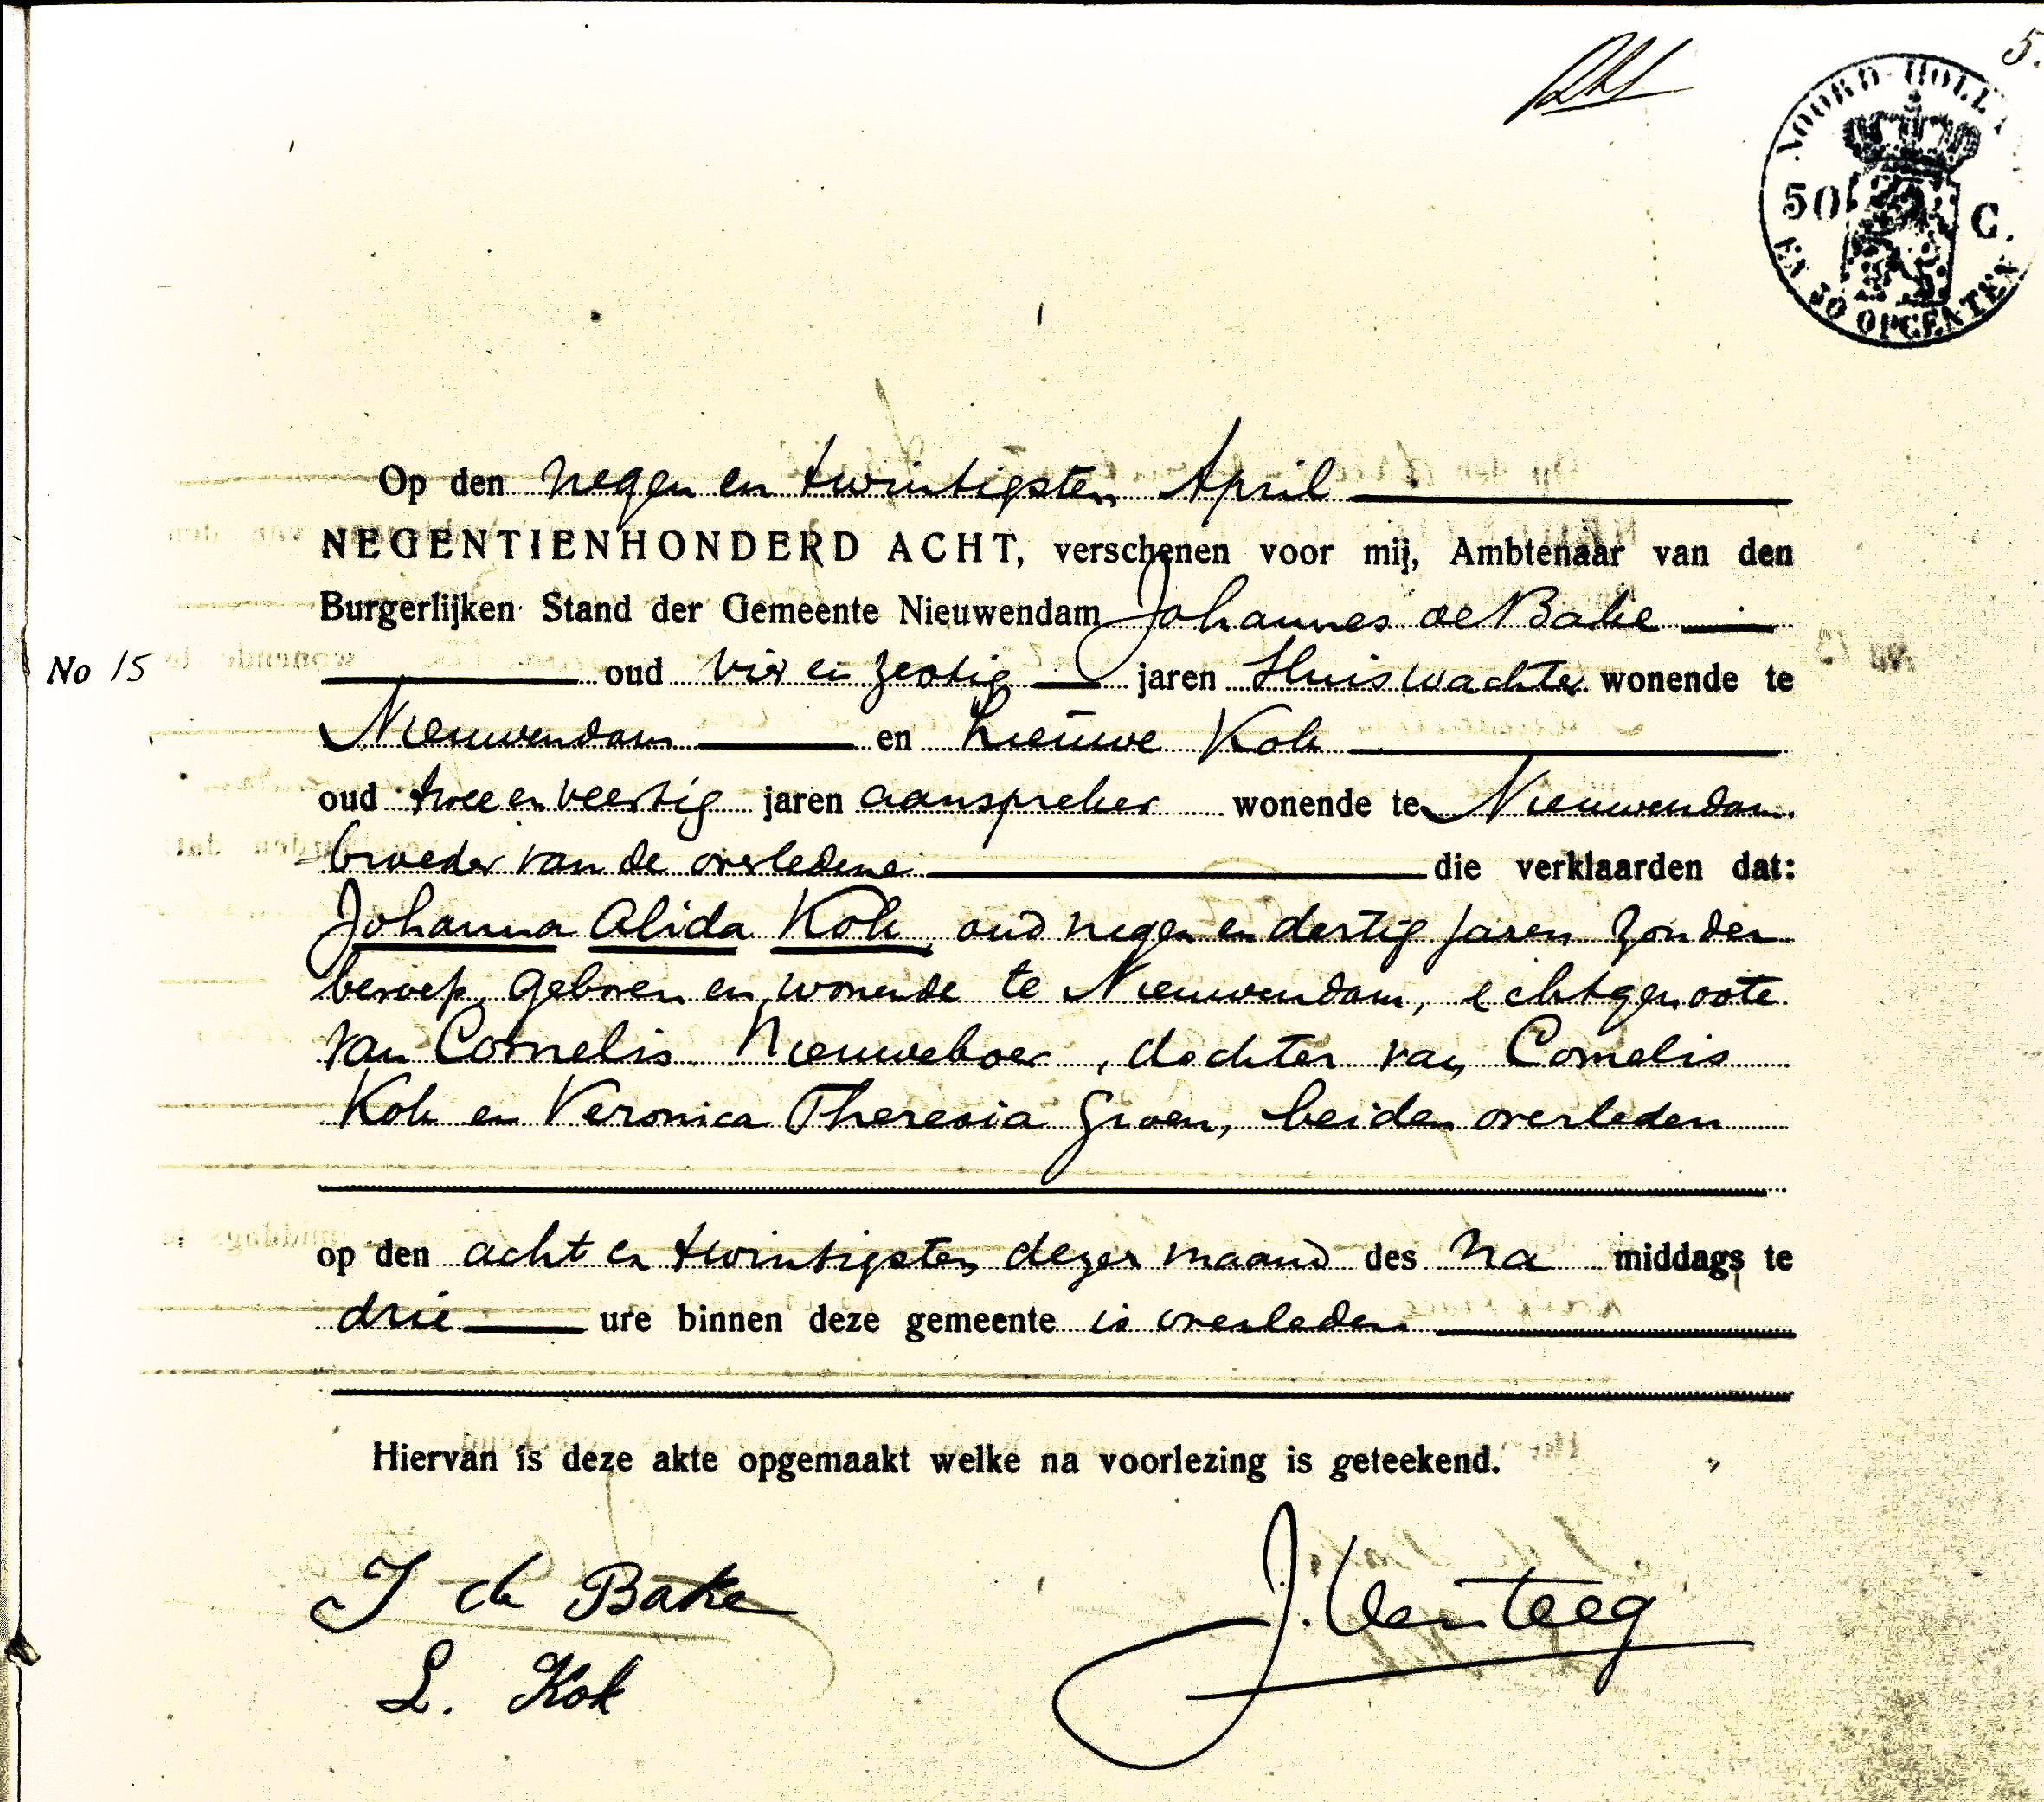 5.
NOORD-HOLL
50 C.
EN 50 OPCENTEN
Op den negen en twintigsten April
NEGENTIENHONDERD ACHT, verschenen voor mij, Ambtenaar van den
Burgerlijken Stand der Gemeente Nieuwendam Johannes de Bake
No 15
oud vier en zestig jaren Huiswachter wonende te
Nieuwendam en Lieuwe Kok
oud twee en veertig jaren aanspreker wonende te Nieuwendam
broeder van de overledene die verklaarden dat:
Johanna Alida Kok, oud negen en dertig jaren zonder
beroep, geboren en wonende te Nieuwendam, echtgenoote
van Cornelis Nieuweboer, dochter van Cornelis
Kok en Veronica Theresia Groen, beiden overleden
op den acht en twintigsten dezer maand des na middags te
drie ure binnen deze gemeente is overleden
Hiervan is deze akte opgemaakt welke na voorlezing is geteekend.
J de Bake
J. Venteeg
L. Kok